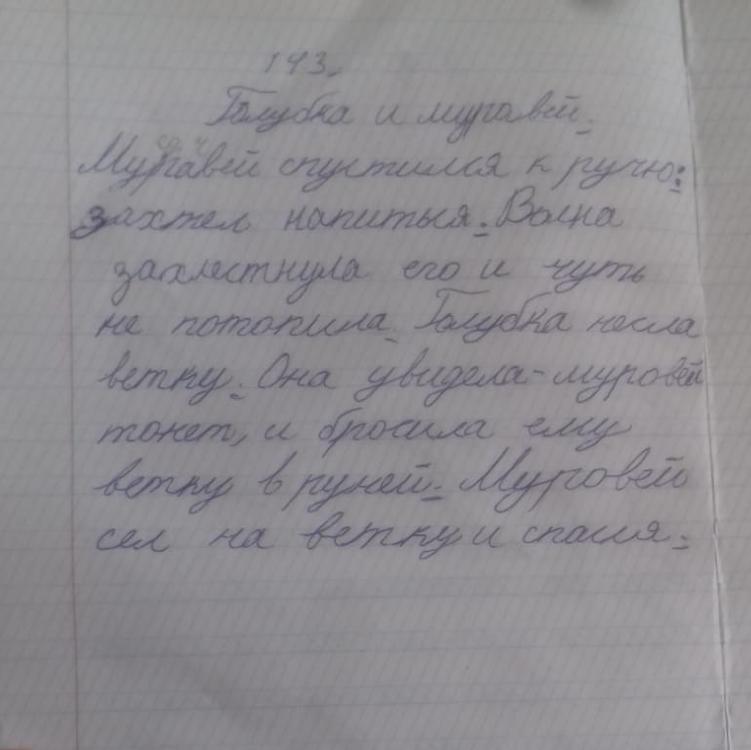 143.
Голубка и муравей.
Муравей спустился к ручю:
захтел напиться. Волна
захлестнула его и чуть
не потопила. Голубка несла
ветку. Она увидела-муровей
тонет, и бросила ему
ветку в ручей. Муровей
сел на ветку и спасся.